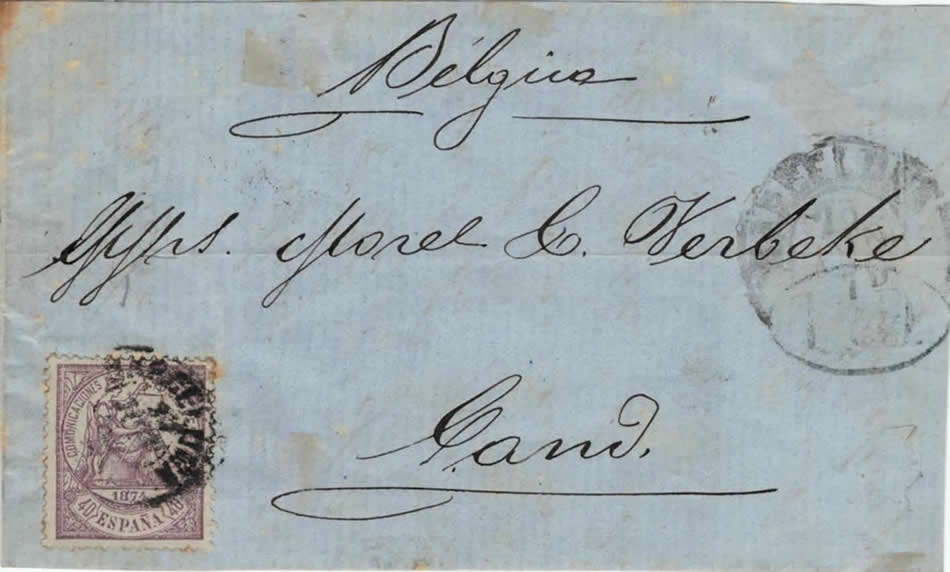 Bélgica
MMrs. Morel C. Verbeke
Gand.
COMUNICACIONES
1874
40 ESPAÑA 40